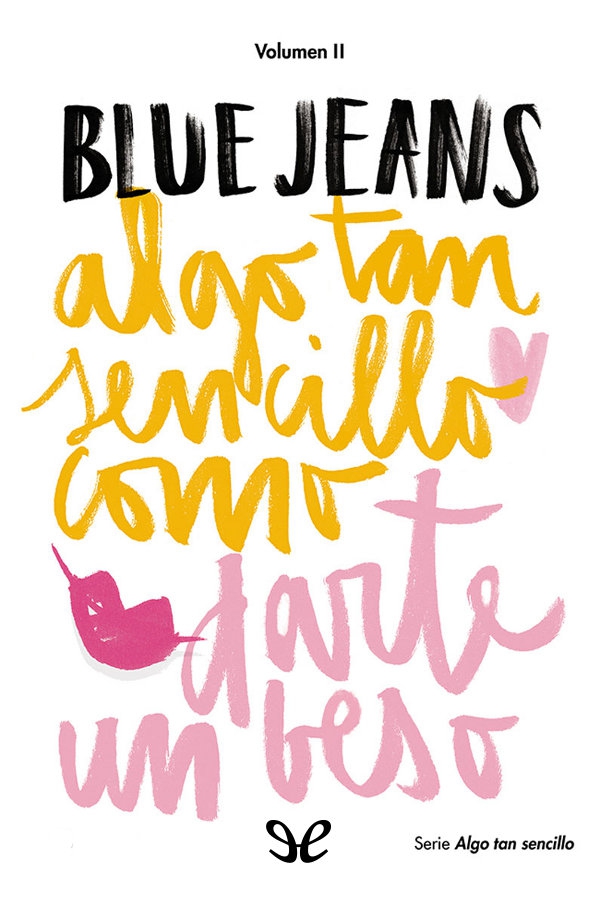 Volumen II
BLUE JEANS
algo tan
sencillo
como
darte
un beso
Serie Algo tan sencillo